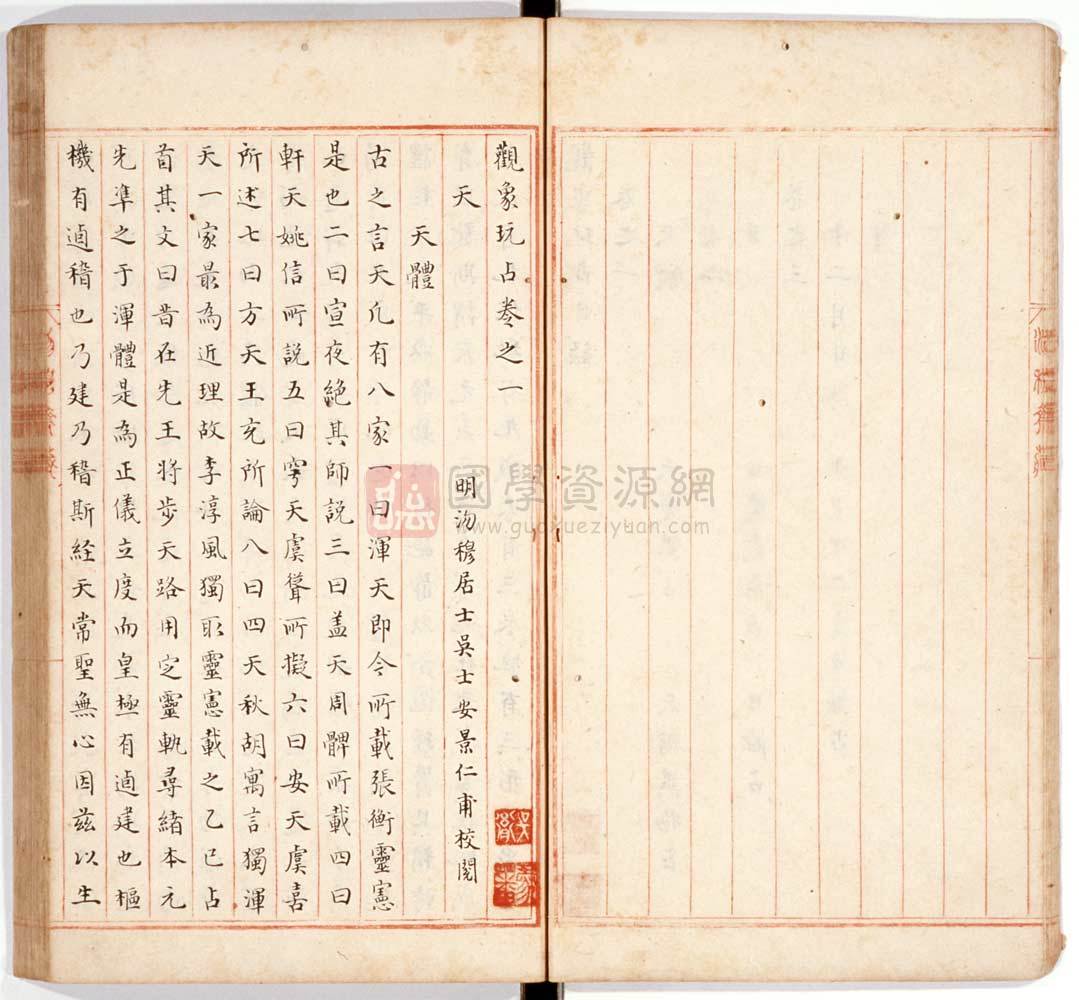 觀象玩占卷之一
明沕穆居士吳士安景仁甫校閱
天
天體
古之言天凡有八家一曰渾天即今所載張衡靈憲
是也二曰宣夜絕其師説三曰盖天周髀所載四曰
軒天姚信所説五曰穹天虞聳所擬六曰安天虞喜
所述七曰方天王充所論八曰四天秋胡寓言獨渾
天一家最為近理故李淳風獨取靈憲載之乙巳占
首其文曰昔在先王將步天路用定靈軌尋緒本元
先凖之于渾體是為正儀立度而皇極有逌建也樞
機有逌稽也乃建乃稽斯経天常聖無心因兹以生
國學資源網
www.guoxueziyuan.com